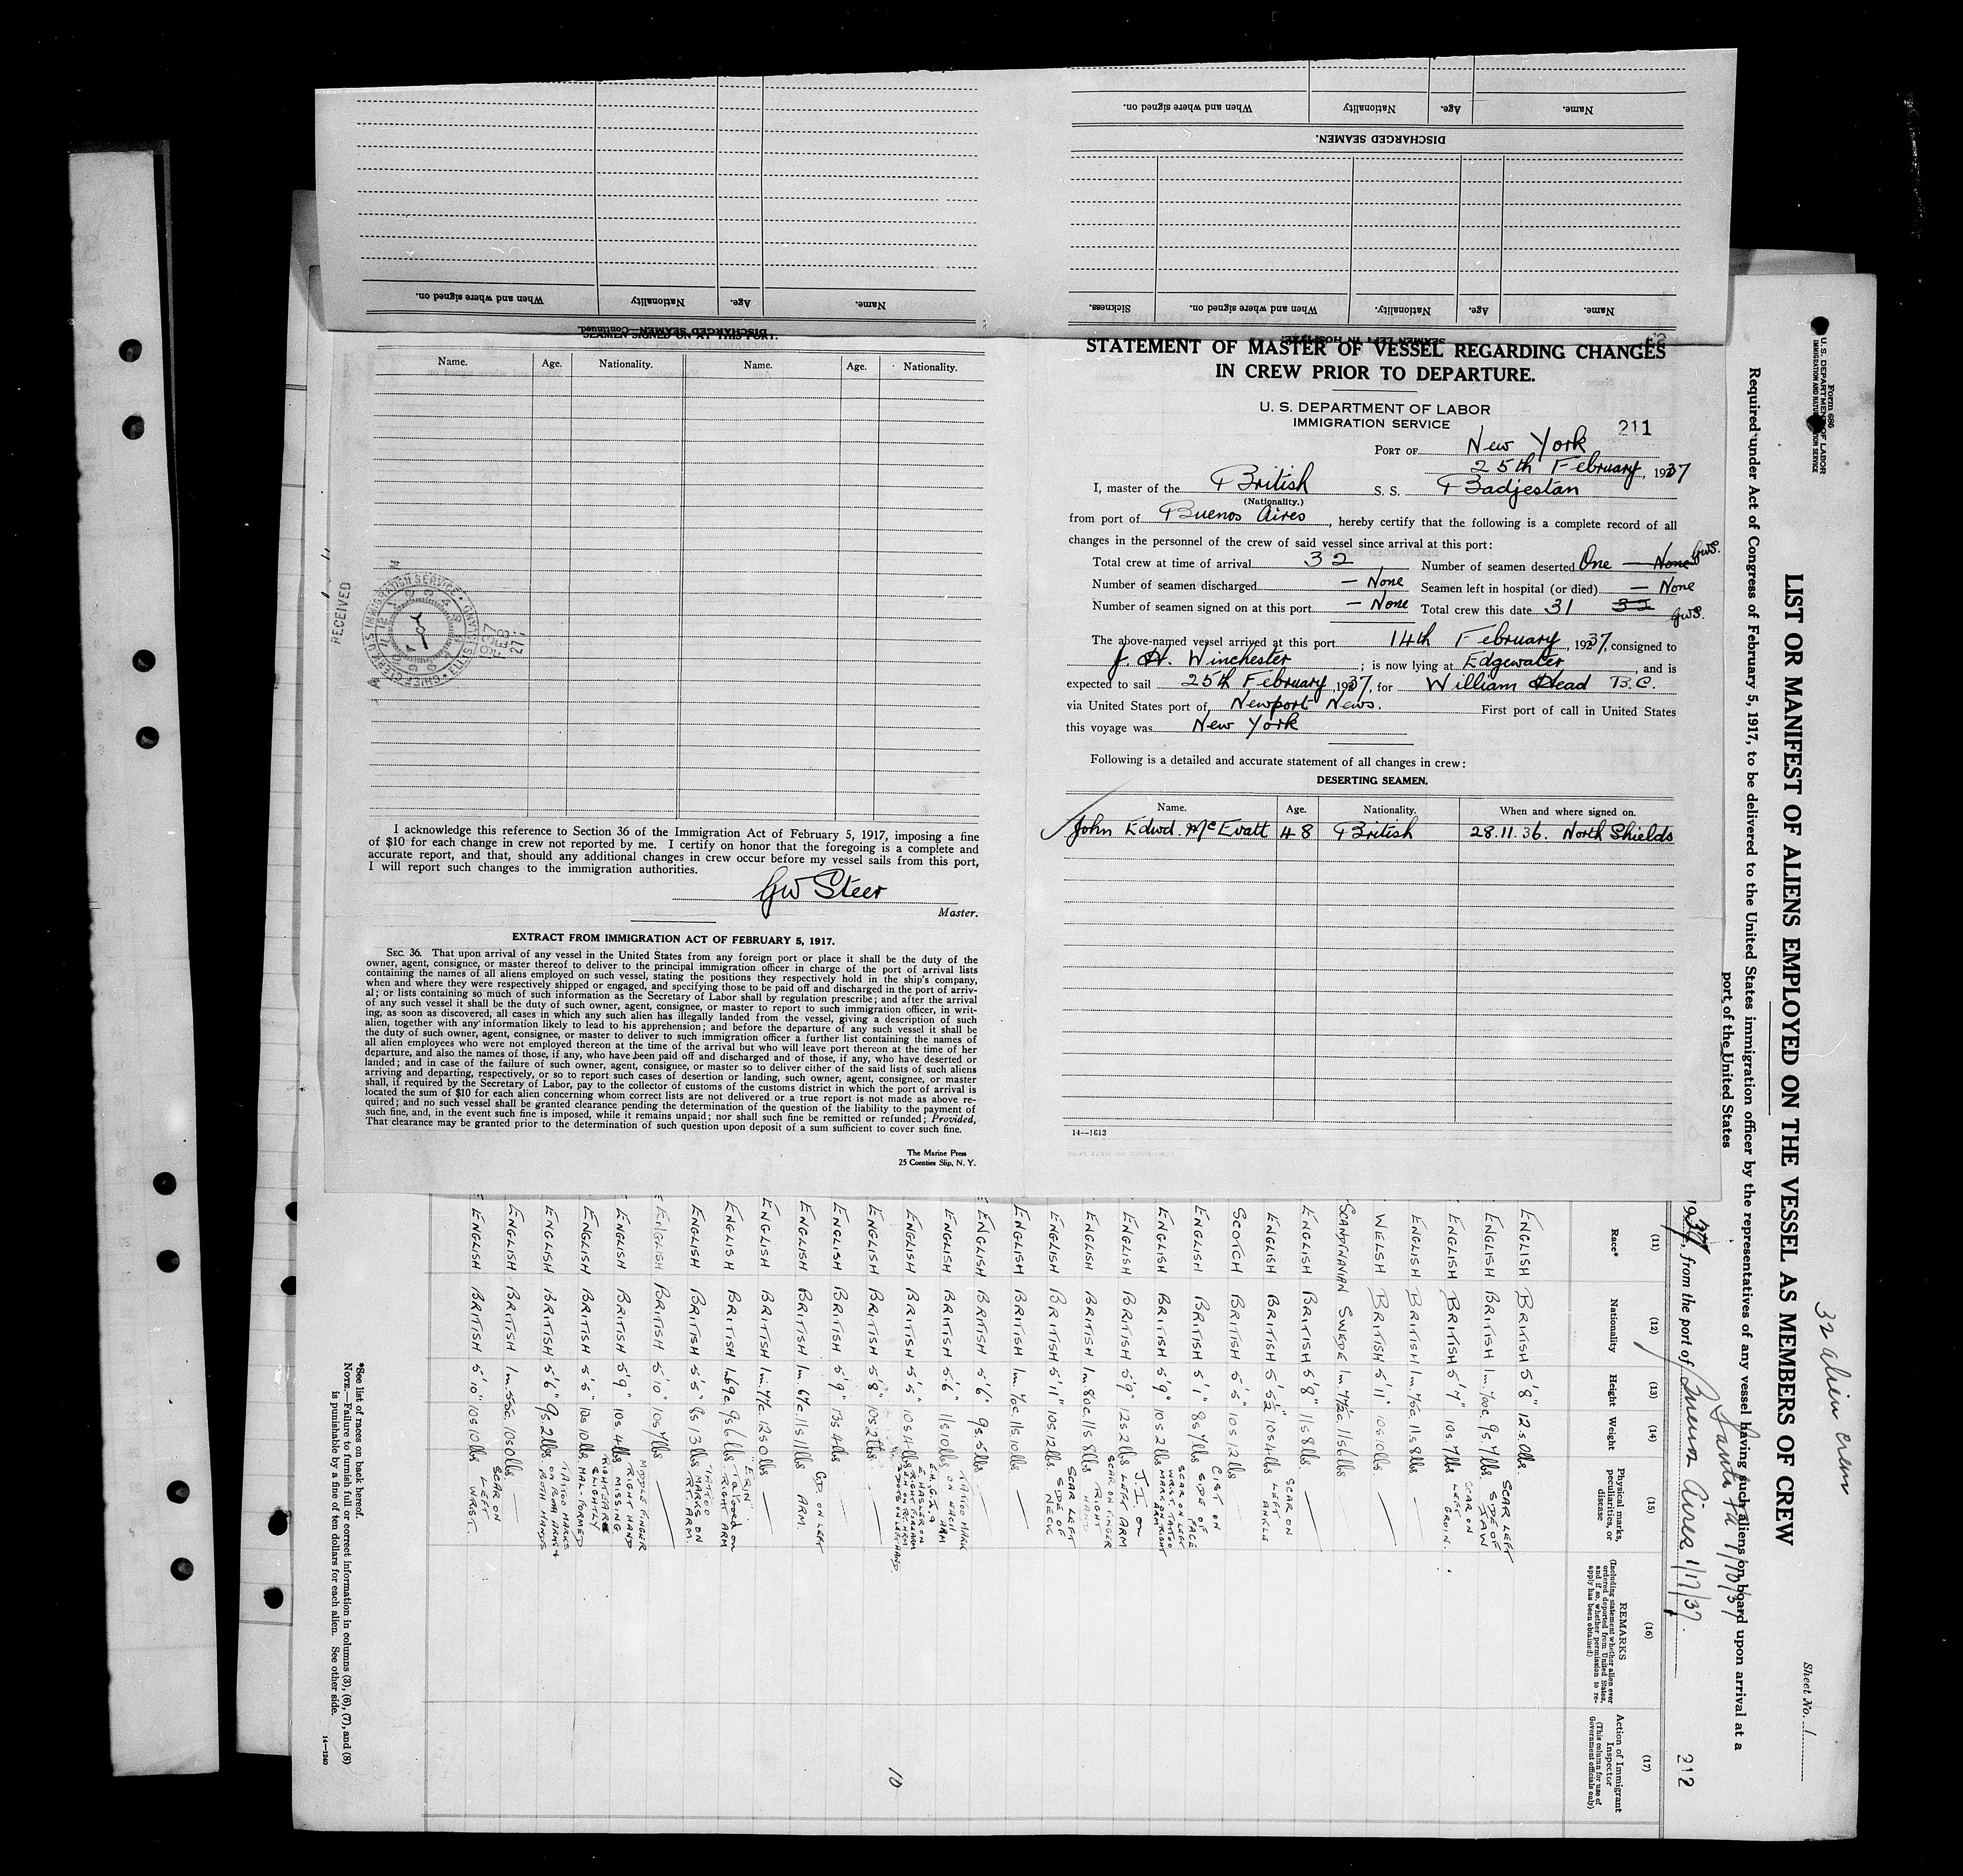 Name. Age. Nationality When and where signed on.
DISCHARGED SEAMEN.
Name. Age. Nationality When and where signed on.
Name. Age. Nationality. When and where signed on. Sickness.
DISCHARGED SEAMEN—Continued.
SEAMEN SIGNED ON AT THIS PORT.
Name. Age. Nationality. Name. Age. Nationality.
RECEIVED
1937 FEB 27
I acknowledge this reference to Section 36 of the Immigration Act of February 5, 1917, imposing a fine
of $10 for each change in crew not reported by me. I certify on honor that the foregoing is a complete and
accurate report, and that, should any additional changes in crew occur before my vessel sails from this port,
I will report such changes to the immigration authorities.
GW Steer
Master.
EXTRACT FROM IMMIGRATION ACT OF FEBRUARY 5, 1917.
SEC. 36. That upon arrival of any vessel in the United States from any foreign port or place it shall be the duty of the
owner, agent, consignee, or master thereof to deliver to the principal immigration officer in charge of the port of arrival lists
containing the names of all aliens employed on such vessel, stating the positions they respectively hold in the ship's company,
when and where they were respectively shipped or engaged, and specifying those to be paid off and discharged in the port of arriv-
al; or lists containing so much of such information as the Secretary of Labor shall by regulation prescribe; and after the arrival
of any such vessel it shall be the duty of such owner, agent, consignee, or master to report to such immigration officer, in writ-
ing, as soon as discovered, all cases in which any such alien has illegally landed from the vessel, giving a description of such
alien, together with any information likely to lead to his apprehension; and before the departure of any such vessel it shall be
the duty of such owner, agent, consignee, or master to deliver to such immigration officer a further list containing the names of
all alien employees who were not employed thereon at the time of the arrival but who will leave port thereon at the time of her
departure, and also the names of those, if any, who have been paid off and discharged and of those, if any, who have deserted or
landed; and in case of the failure of such owner, agent, consignee, or master so to deliver either of the said lists of such aliens
arriving and departing, respectively, or so to report such cases of desertion or landing, such owner, agent, consignee, or master
shall, if required by the Secretary of Labor, pay to the collector of customs of the customs district in which the port of arrival is
located the sum of $10 for each alien concerning whom correct lists are not delivered or a true report is not made as above re-
quired; and no such vessel shall be granted clearance pending the determination of the question of the liability to the payment of
such fine, and, in the event such fine is imposed, while it remains unpaid; nor shall such fine be remitted or refunded; Provided,
That clearance may be granted prior to the determination of such question upon deposit of a sum sufficient to cover such fine.
The Marine Press
25 Coenties Slip, N. Y.
STATEMENT OF MASTER OF VESSEL REGARDING CHANGES
IN CREW PRIOR TO DEPARTURE.
U. S. DEPARTMENT OF LABOR
IMMIGRATION SERVICE
211
PORT OF New York
25th February, 1937
I, master of the British S. S. Badjestan
(Nationality.)
from port of Buenos Aires, hereby certify that the following is a complete record of all
changes in the personnel of the crew of said vessel since arrival at this port:
Total crew at time of arrival 32 Number of seamen deserted One — None GWS.
Number of seamen discharged — None Seamen left in hospital (or died) — None
Number of seamen signed on at this port — None Total crew this date 31 32 GWS.
The above-named vessel arrived at this port 14th February, 1937, consigned to
J. H. Winchester; is now lying at Edgewater, and is
expected to sail 25th February, 1937, for William Head B.C.
via United States port of Newport News. First port of call in United States
this voyage was New York
Following is a detailed and accurate statement of all changes in crew:
DESERTING SEAMEN.
Name. Age. Nationality. When and where signed on.
John Edwd. McEvatt 48 British 28.11.36. North Shields
14—1613
Form 686
U. S. DEPARTMENT OF LABOR
IMMIGRATION AND NATURALIZATION SERVICE
32 alien crew
Sheet No. 1
LIST OR MANIFEST OF ALIENS EMPLOYED ON THE VESSEL AS MEMBERS OF CREW
Required under Act of Congress of February 5, 1917, to be delivered to the United States immigration officer by the representatives of any vessel having such aliens on board upon arrival at a
port of the United States
Santa Fa 1/10/37
1937, from the port of Buenos Aires 1/17/37.
212
(11) (12) (13) (14) (15) (16) (17)
Race* Nationality Height Weight Physical marks, peculiarities, or disease REMARKS (Including statement whether alien ever ordered deported from United States, and if so, whether permission to re-apply has been obtained) Action of Immigrant Inspector (This column for use of Government officials only)
ENGLISH BRITISH 5'8" 12s.0lbs.
ENGLISH BRITISH 1m.70c. 9s 7lbs. SCAR LEFT SIDE OF JAW
ENGLISH BRITISH 5'7" 10s.7lbs SCAR ON LEFT GROIN.
ENGLISH BRITISH 1m.76c. 11s 8lbs —
WELSH BRITISH 5'11" 10s10lbs —
SCANDINAVIAN SWEDE 1m.74½c. 11s6lbs
ENGLISH BRITISH 5'8" 11s 8lbs. —
ENGLISH BRITISH 5'5½" 10s4lbs SCAR ON LEFT ANKLE
SCOTCH BRITISH 5'5" 10s12lbs
ENGLISH BRITISH 5'1" 8s7lbs CIST ON SIDE OF FACE
ENGLISH BRITISH 5'9" 10s2lbs SCAR ON LEFT WRIST. TATTOO MARK ON RIGHT
ENGLISH BRITISH 5'9" 12s 2lbs J.I. ON LEFT ARM
ENGLISH BRITISH 1m 80c. 11s 8lbs SCAR ON FINGER RIGHT HAND
ENGLISH BRITISH 5'11" 10s12lbs SCAR LEFT SIDE OF NECK
ENGLISH BRITISH 1m.70c 11s.10lbs —
ENGLISH BRITISH 5'6" 9s.5lbs —
ENGLISH BRITISH 5'6" 11s10lbs TATTOO MARK ON EACH ARM
ENGLISH BRITISH 5'5" 10s4lbs
ENGLISH BRITISH 5'8" 10s2lbs —
ENGLISH BRITISH 5'9" 13s4lbs —
ENGLISH BRITISH 1m.67c. 11s11lbs G.D. ON LEFT ARM.
ENGLISH BRITISH 1m.77c. 12s0lbs —
ENGLISH BRITISH 1m69c. 9s6lbs "ERIN" Tatooed on RIGHT ARM
ENGLISH BRITISH 5'5" 8s13lbs TATTOO MARKS ON RT. ARM.
ENGLISH BRITISH 5'10" 10s7lbs —
ENGLISH BRITISH 5'9" 10s4lbs MIDDLE FINGER RIGHT HAND MISSING
ENGLISH BRITISH 5'5" 10s10lbs RIGHT EAR SLIGHTLY MAL-FORMED
ENGLISH BRITISH 5'6" 9s.2lbs TATTOO MARKS ON BOTH ARMS & BOTH HANDS
ENGLISH BRITISH 1m.55c. 10s0lbs —
ENGLISH BRITISH 5'10" 10s10lbs SCAR ON LEFT WRIST.
10
*See list of races on back hereof.
NOTE.—Failure to furnish full or correct information in columns (3), (6), (7), and (8)
is punishable by a fine of ten dollars for each alien. See other side.
14—1240